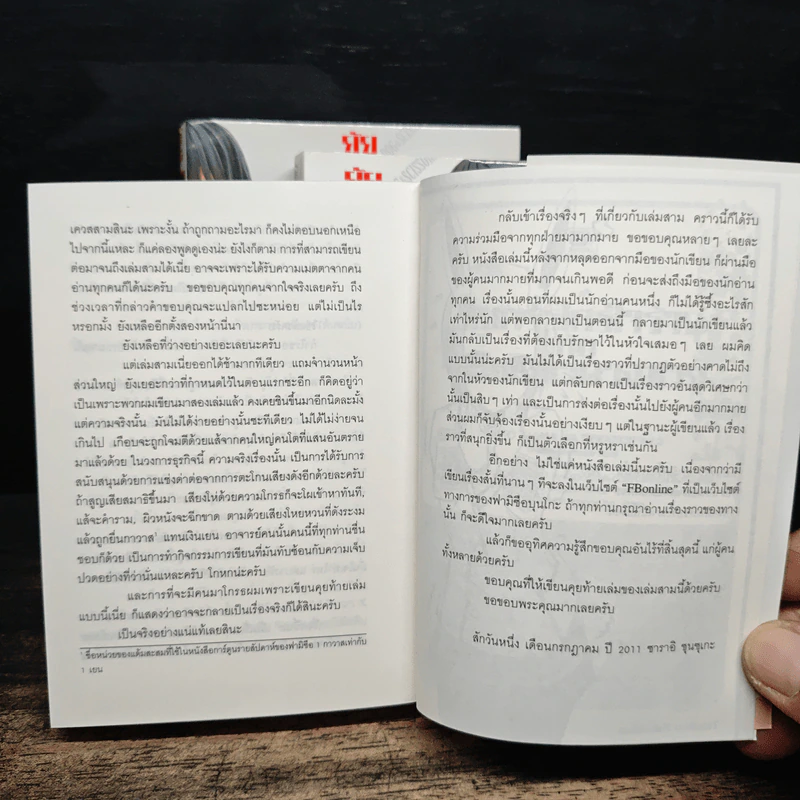 ยัย
ยัย
เควสสามสินะ เพราะงั้น ถ้าถูกถามอะไรมา ก็คงไม่ตอบนอกเหนือ
ไปจากนี้แหละ ก็แค่ลองพูดดูเองน่ะ ยังไงก็ตาม การที่สามารถเขียน
ต่อมาจนถึงเล่มสามได้เนี่ย อาจจะเพราะได้รับความเมตตาจากคน
อ่านทุกคนก็ได้นะครับ ขอขอบคุณทุกคนจากใจจริงเลยครับ ถึง
ช่วงเวลาที่กล่าวคำขอบคุณจะแปลกไปซะหน่อย แต่ไม่เป็นไร
หรอกมั้ง ยังเหลืออีกตั้งสองหน้านี่นา
ยังเหลือที่ว่างอย่างเยอะเลยนะครับ
แต่เล่มสามเนี่ยออกได้ช้ามากทีเดียว แถมจำนวนหน้า
ส่วนใหญ่ ยังเยอะกว่าที่กำหนดไว้ในตอนแรกซะอีก ก็คิดอยู่ว่า
เป็นเพราะพวกผมเขียนมาสองเล่มแล้ว คงเคยชินขึ้นมาอีกนิดละมั้ง
แต่ความจริงนั้น มันไม่ได้ง่ายอย่างนั้นซะทีเดียว ไม่ได้ไม่ง่ายจน
เกินไป เกือบจะถูกโจมตีด้วยแส้จากคนใหญ่คนโตที่แสนอันตราย
มาแล้วด้วย ในวงการธุรกิจนี้ ความจริงเรื่องนั้น เป็นการได้รับการ
สนับสนุนด้วยการแช่งด่าต่อจากการตะโกนเสียงดังอีกด้วยละครับ
ถ้าสูญเสียสมาธิขึ้นมา เสียงไห้ด้วยความโกรธก็จะโผเข้าหาทันที,
แส้จะคำราม, ผิวหนังจะฉีกขาด ตามด้วยเสียงโหยหวนที่ดังระงม
แล้วถูกยื่นกาวาส¹ แทนเงินเยน อาจารย์คนนั้นคนนี้ที่ทุกท่านชื่น
ชอบก็ด้วย เป็นการทำกิจกรรมการเขียนที่มันทับซ้อนกับความเจ็บ
ปวดอย่างที่ว่านั่นแหละครับ โกหกน่ะครับ
และการที่จะมีคนมาโกรธผมเพราะเขียนคุยท้ายเล่ม
แบบนี้เนี่ย ก็แสดงว่าอาจจะกลายเป็นเรื่องจริงก็ได้สินะครับ
เป็นจริงอย่างแน่แท้เลยสินะ
¹ ชื่อหน่วยของแต้มสะสมที่ใช้ในหนังสือการ์ตูนรายสัปดาห์ของฟามิซือ 1 กาวาสเท่ากับ
1 เยน
กลับเข้าเรื่องจริงๆ ที่เกี่ยวกับเล่มสาม คราวนี้ก็ได้รับ
ความร่วมมือจากทุกฝ่ายมามากมาย ขอขอบคุณหลายๆ เลยละ
ครับ หนังสือเล่มนี้หลังจากหลุดออกจากมือของนักเขียน ก็ผ่านมือ
ของผู้คนมากมายที่มากจนเกินพอดี ก่อนจะส่งถึงมือของนักอ่าน
ทุกคน เรื่องนั้นตอนที่ผมเป็นนักอ่านคนหนึ่ง ก็ไม่ได้รู้ซึ้งอะไรสัก
เท่าไหร่นัก แต่พอกลายมาเป็นตอนนี้ กลายมาเป็นนักเขียนแล้ว
มันกลับเป็นเรื่องที่ต้องเก็บรักษาไว้ในหัวใจเสมอๆ เลย ผมคิด
แบบนั้นน่ะครับ มันไม่ได้เป็นเรื่องราวที่ปรากฏตัวอย่างคาดไม่ถึง
จากในหัวของนักเขียน แต่กลับกลายเป็นเรื่องราวอันสุดวิเศษกว่า
นั้นเป็นสิบๆ เท่า และเป็นการส่งต่อเรื่องนั้นไปยังผู้คนอีกมากมาย
ส่วนผมก็จับจ้องเรื่องนั้นอย่างเงียบๆ แต่ในฐานะผู้เขียนแล้ว เรื่อง
ราวที่สนุกยิ่งขึ้น ก็เป็นตัวเลือกที่หรูหราเช่นกัน
อีกอย่าง ไม่ใช่แค่หนังสือเล่มนี้นะครับ เนื่องจากว่ามี
เขียนเรื่องสั้นที่นานๆ ทีจะลงในเว็บไซต์ “FBonline” ที่เป็นเว็บไซต์
ทางการของฟามิซือบุนโกะ ถ้าทุกท่านกรุณาอ่านเรื่องราวของทาง
นั้น ก็จะดีใจมากเลยครับ
แล้วก็ขออุทิศความรู้สึกขอบคุณอันไร้ที่สิ้นสุดนี้ แก่ผู้คน
ทั้งหลายด้วยครับ
ขอบคุณที่ให้เขียนคุยท้ายเล่มของเล่มสามนี้ด้วยครับ
ขอขอบพระคุณมากเลยครับ
สักวันหนึ่ง เดือนกรกฎาคม ปี 2011 ซาราอิ ชุนซุเกะ